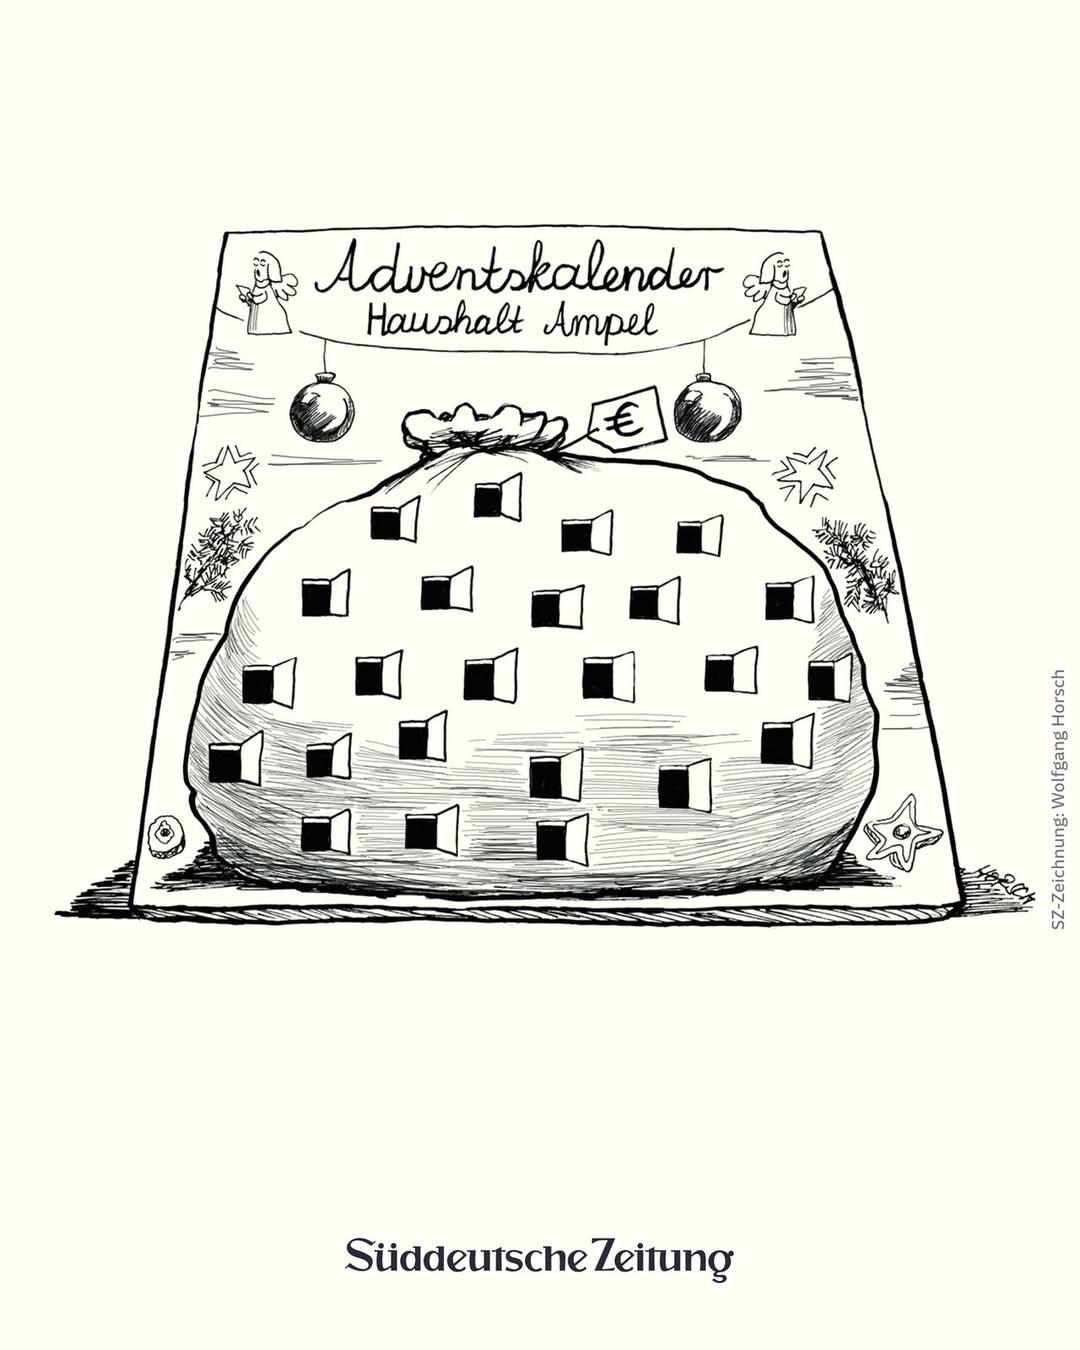 Adventskalender
Haushalt Ampel
€
HORSCH
SZ-Zeichnung: Wolfgang Horsch
Süddeutsche Zeitung